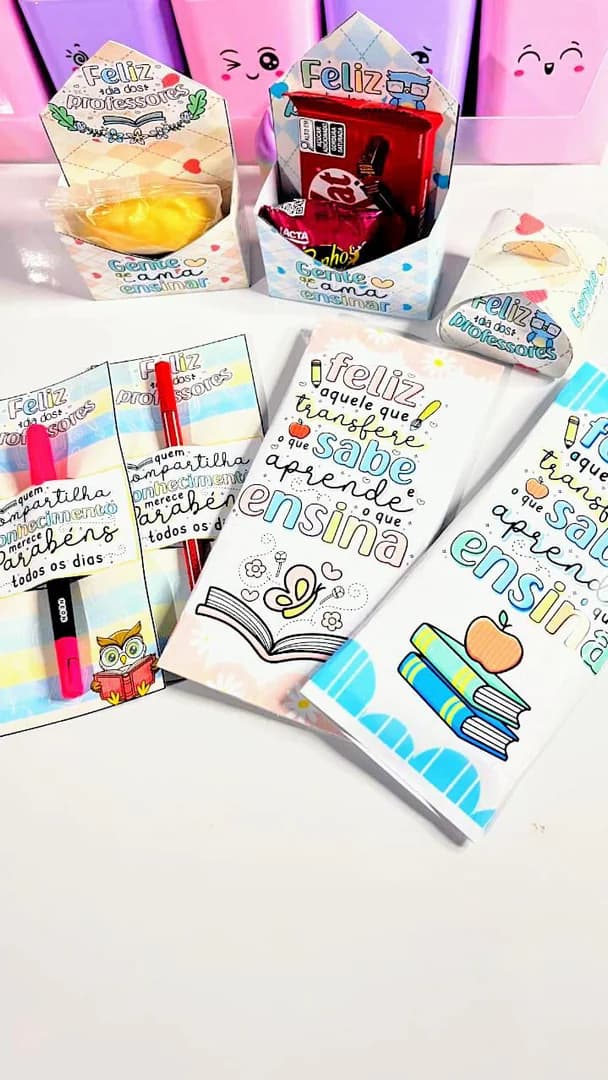 Feliz
dia dos
professores
Gente
que ama
ensinar
Feliz
AÇÚCAR
ADICIONADO
GORDURA
SATURADA
LACTA
Gente
que ama
ensinar
Feliz
dia dos
professores
Gente
Feliz
dia dos
professores
quem
compartilha
conhecimento
merece
Parabéns
todos os dias
Feliz
dia dos
professores
quem
compartilha
conhecimento
merece
Parabéns
todos os di
feliz
aquele que
transfere
o que sabe
aprende e
o que
ensina
fe
aquele
transfe
o que sab
aprende
o qu
ensina